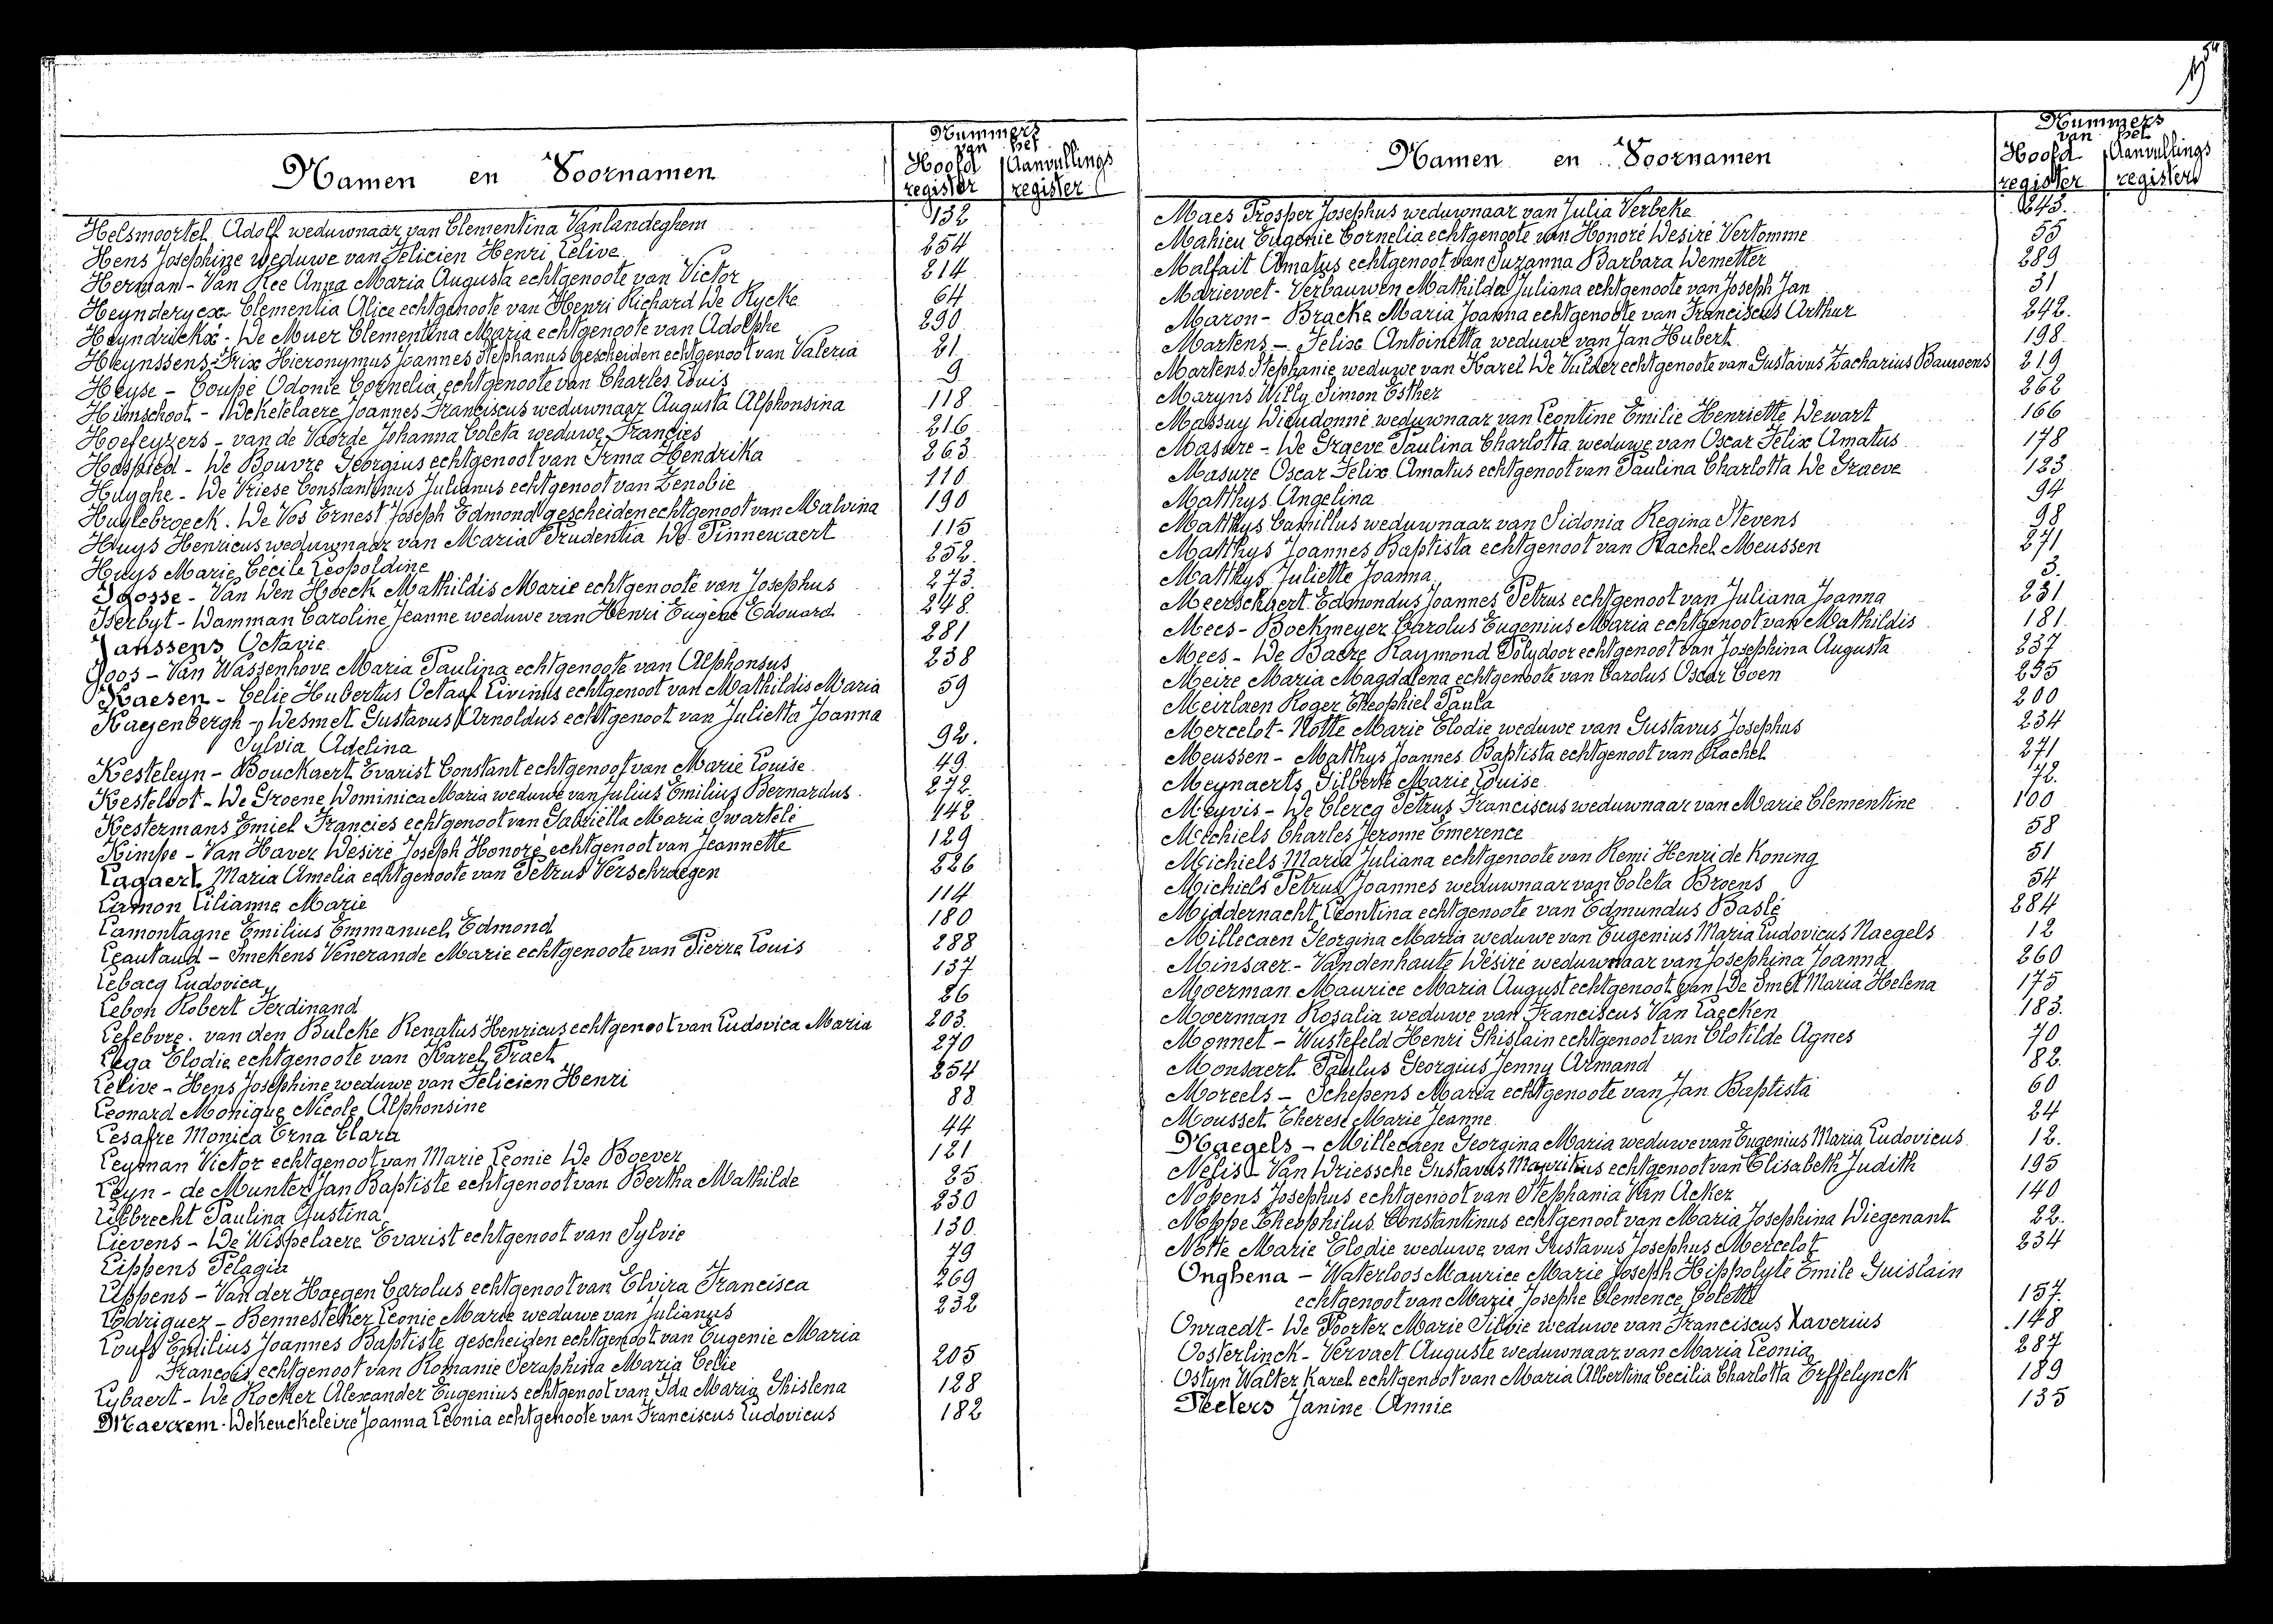 Namen en Voornamen
Nummers
van het
Hoofd register
Aanvullings register
Helsmoortel Adolf weduwnaar van Clementina Vanlandeghem 132
Hens Josephine weduwe van Felicien Henri Lelive 254
Herman - Van Ree Anna Maria Augusta echtgenoote van Victor 214
Heynderycx Clementia Alice echtgenoote van Henri Richard De Rycke 64
Heyndrickx - De Muer Clementina Maria echtgenoote van Adolphe 290
Heynssens - Frix Hieronymus Joannes Stephanus gescheiden echtgenoot van Valeria 21
Heyse - Coupé Odonie Cornelia echtgenoote van Charles Louis 9
Himschoot - Deketelaere Joannes Franciscus weduwnaar Augusta Alphonsina 118
Hoefeyzers - van de Voorde Johanna Coleta weduwe Francies 216
Hospied - De Bouvre Georgius echtgenoot van Irma Hendrika 263
Huyghe - De Vriese Constantinus Julianus echtgenoot van Zenobie 110
Huylebroeck . De Vos Ernest Joseph Edmond gescheiden echtgenoot van Malvina 190
Huys Henricus weduwnaar van Maria Prudentia De Pinnewaert 115
Huys Marie Cecile Leopoldine 252
Igosse - Van Den Hoeck Mathildis Marie echtgenoote van Josephus 273
Iserbyt - Damman Caroline Jeanne weduwe van Henri Eugène Edouard 248
Janssens Octavie 281
Joos - Van Wassenhove Maria Paulina echtgenoote van Alphonsus 238
Kaesen - Celie Hubertus Octaaf Livinus echtgenoot van Mathildis Maria 59
Kagenbergh - Desmet Gustavus Arnoldus echtgenoot van Julietta Joanna
Sylvia Adelina 92.
Kesteleyn - Bouckaert Evarist Constant echtgenoot van Marie Louise 49
Kesteloot - De Groene Dominica Maria weduwe van Julius Emilius Bernardus 272
Kestermans Emiel Francies echtgenoot van Gabriëlla Maria Swartelé 142
Kimpe - Van Haver Désiré Joseph Honoré echtgenoot van Jeannette 129
Lagaert Maria Amelia echtgenoote van Petrus Verschraegen 226
Lamon Lilianne Marie 114
Lamontagne Emilius Emmanuel Edmond 180
Leautaud - Smekens Venerande Marie echtgenoote van Pierre Louis 288
Lebacq Ludovica 137
Lebon Robert Ferdinand 26
Lefebvre . van den Bulcke Renatus Henricus echtgenoot van Ludovica Maria 203
Lega Elodie echtgenoote van Karel Praet 270
Lelive - Hens Josephine weduwe van Felicien Henri 254
Leonard Monique Nicole Alphonsine 88
Lesafre Monica Erna Clara 44
Leyman Victor echtgenoot van Marie Leonie De Boever 121
Leyn - de Munter Jan Baptiste echtgenoot van Bertha Mathilde 25
Libbrecht Paulina Justina 230
Lievens - De Wispelaere Evarist echtgenoot van Sylvie 130
Lippens Pelagia 79
Lippens - Van der Haegen Carolus echtgenoot van Elvira Francisca 269
Lodriguez - Bennesteker Leonie Marie weduwe van Julianus 232
Loufs Emilius Joannes Baptiste gescheiden echtgenoot van Eugenie Maria
François echtgenoot van Romanie Seraphina Maria Celie 205
Lybaert - De Rocker Alexander Eugenius echtgenoot van Ida Maria Ghislena 128
Maerrem - Dekeuckeleire Joanna Leonia echtgenoote van Franciscus Ludovicus 182
Namen en Voornamen
Nummers
van het
Hoofd register
Aanvullings register
Maes Prosper Josephus weduwnaar van Julia Verbeke 243
Mahieu Eugenie Cornelia echtgenoote van Honoré Désiré Vertomme 55
Malfait Amatus echtgenoot van Suzanna Barbara Demetter 289
Marievoet - Verbauwen Mathilda Juliana echtgenoote van Joseph Jan 31
Maron - Bracke Maria Joanna echtgenoote van Franciscus Arthur 242.
Martens - Felix Antoinetta weduwe van Jan Hubert 198
Martens Stephanie weduwe van Karel De Vulder echtgenoote van Gustavus Zacharius Bauwens 219
Maryns Willy Simon Esther 262
Massuy Dieudonné weduwnaar van Leontine Emilie Henriette Dewart 166
Masure - De Graeve Paulina Charlotta weduwe van Oscar Felix Amatus 178
Masure Oscar Felix Amatus echtgenoot van Paulina Charlotta De Graeve 123
Matthys Angelina 94
Matthys Camillus weduwnaar van Sidonia Regina Stevens 98
Matthys Joannes Baptista echtgenoot van Rachel Meussen 271
Matthys Juliette Joanna 3.
Meerschaert Edmondus Joannes Petrus echtgenoot van Juliana Joanna 231
Mees - Boekmeyer Carolus Eugenius Maria echtgenoot van Mathildis 181
Mees - De Baere Raymond Polydoor echtgenoot van Josephina Augusta 237
Meire Maria Magdalena echtgenoote van Carolus Oscar Coen 235
Meirlaen Roger Theophiel Paula 200
Mercelot - Notte Marie Elodie weduwe van Gustavus Josephus 234
Meussen - Matthys Joannes Baptista echtgenoot van Rachel 271
Meynaerts Gilberte Marie Louise 72.
Meyvis - De Clercq Petrus Franciscus weduwnaar van Marie Clementine 100
Michiels Charles Jerome Emerence 58
Michiels Maria Juliana echtgenoote van Remi Henri de Koning 51
Michiels Petrus Joannes weduwnaar van Coleta Broens 54
Middernacht Leontina echtgenoote van Edmundus Baslé 284
Millecaen Georgina Maria weduwe van Eugenius Maria Ludovicus Naegels 12
Minsaer - Vandenhaute Désiré weduwnaar van Josephina Joanna 260
Moerman Maurice Maria August echtgenoot van De Smet Maria Helena 175
Moerman Rosalia weduwe van Franciscus Van Laecken 183.
Monnet - Wustefeld Henri Ghislain echtgenoot van Clotilde Agnes 70
Monsaert Paulus Georgius Jenny Armand 82.
Moreels - Schepens Maria echtgenoote van Jan Baptista 60
Mousset Therese Marie Jeanne 24
Naegels - Millecaen Georgina Maria weduwe van Eugenius Maria Ludovicus 12.
Nelis - Van Driessche Gustavus Mauritius echtgenoot van Elisabeth Judith 195
Nopens Josephus echtgenoot van Stephania Van Acker 140
Noppe Theophilus Constantinus echtgenoot van Maria Josephina Wiegenant 22.
Notte Marie Elodie weduwe van Gustavus Josephus Mercelot 234
Onghena - Waterloos Maurice Marie Joseph Hippolyte Emile Guislain
echtgenoot van Marie Josephe Clemence Colette 157.
Onraedt - De Poorter Marie Silvie weduwe van Franciscus Xaverius 148
Oosterlinck - Vervaet Auguste weduwnaar van Maria Leonia 287
Ostyn Walter Karel echtgenoot van Maria Albertina Cecilia Charlotta Erffelynck 189
Peeters Janine Annie 135